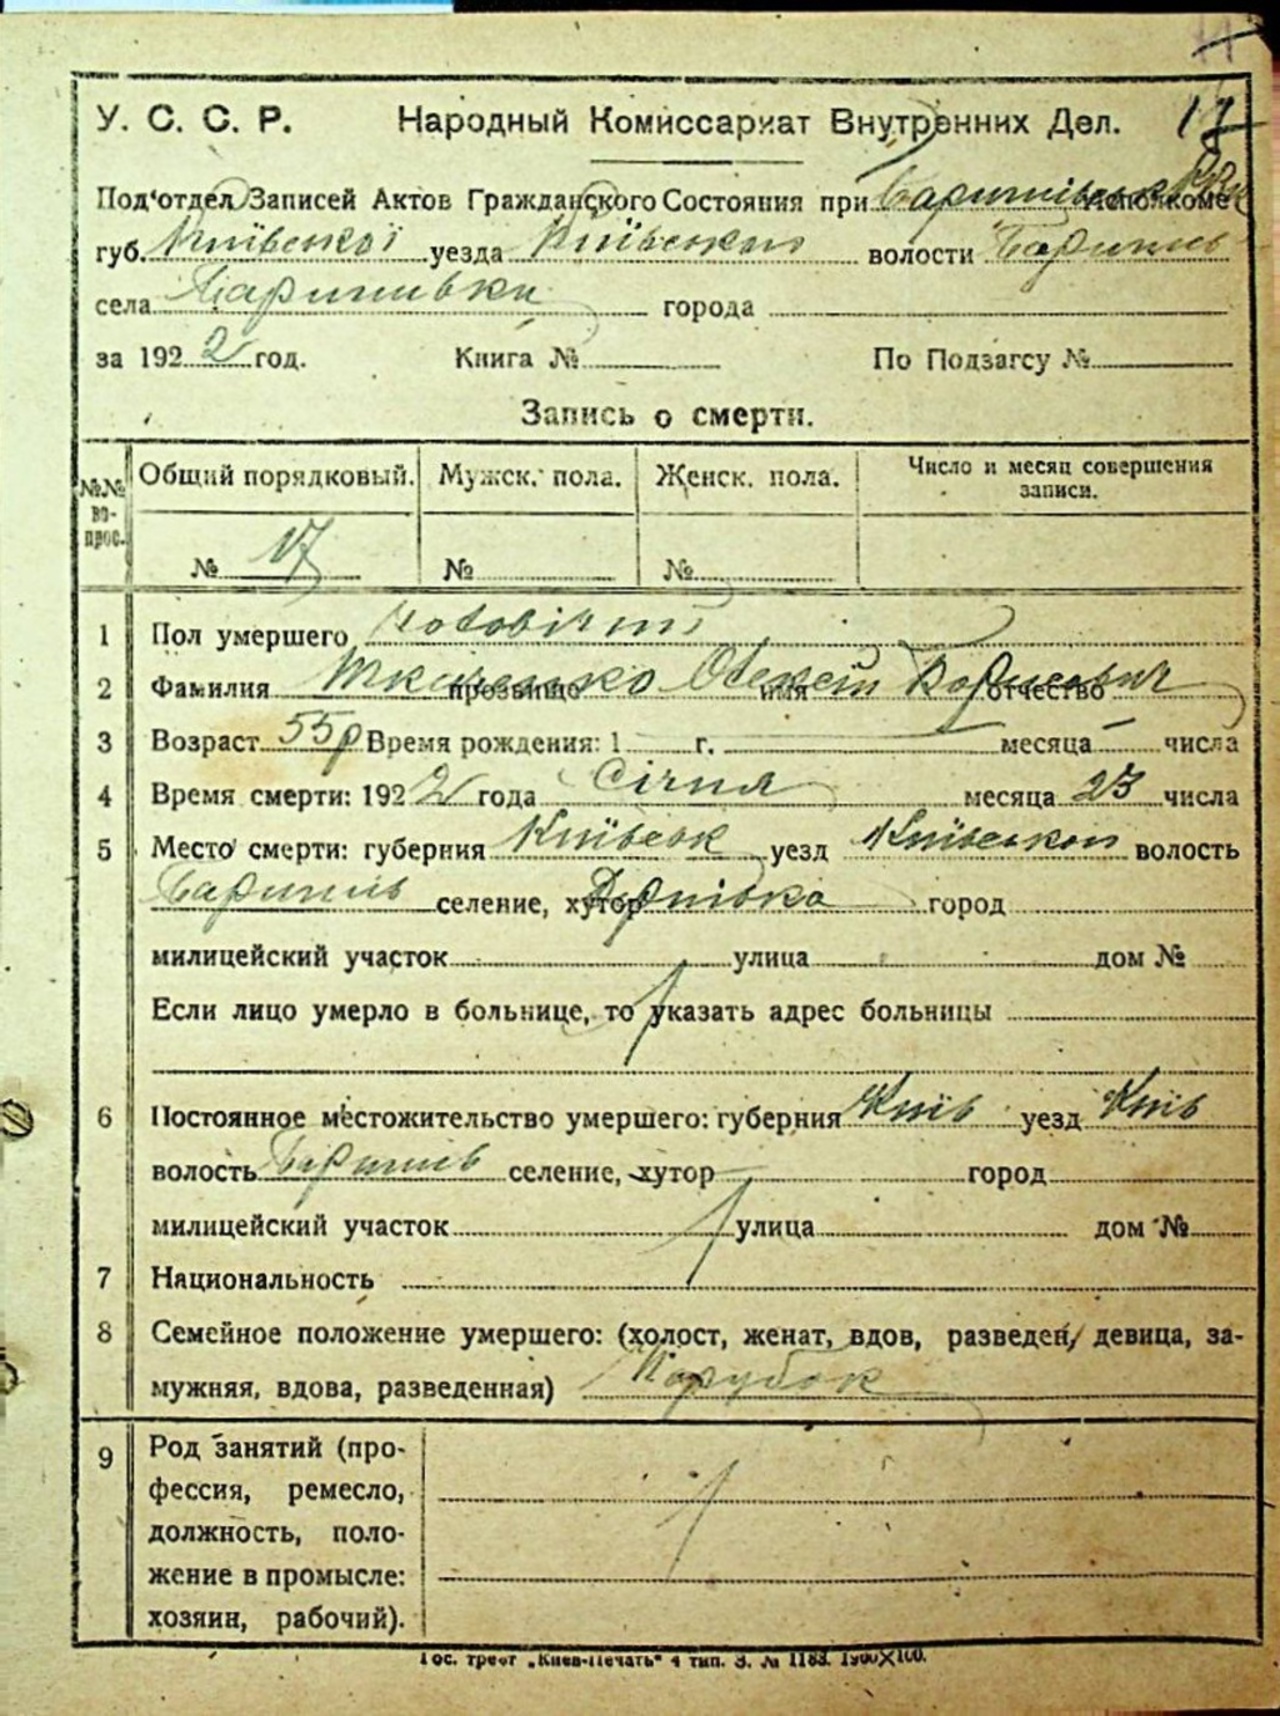 17
У. С. С. Р. Народный Комиссариат Внутренних Дел.
Под'отдел Записей Актов Гражданского Состояния при Исполкоме
губ. Київської уезда Київського волости Баришів
села Баришівки города
за 1922 год. Книга № По Подзагсу №
Запись о смерти.
№№ вопрос. Общий порядковый. Мужск. пола. Женск. пола. Число и месяц совершения записи.
№ 17 № №
1 Пол умершего чоловічий
2 Фамилия прозвище Олексій имя Борисович отчество
3 Возраст 55 р Время рождения: 1 г. месяца числа
4 Время смерти: 1922 года Січня месяца 23 числа
5 Место смерти: губерния Київськ уезд Київського волость
Баришів селение, хутор город
милицейский участок улица дом №
Если лицо умерло в больнице, то указать адрес больницы
6 Постоянное местожительство умершего: губерния Київ уезд Київ
волость Баришів селение, хутор город
милицейский участок улица дом №
7 Национальность
8 Семейное положение умершего: (холост, женат, вдов, разведен, девица, за-
мужняя, вдова, разведенная) Парубок
9 Род занятий (про-
фессия, ремесло,
должность, поло-
жение в промысле:
хозяин, рабочий).
Гос. трест „Киев-Печать" 4 тип. З. № 1183. 1900×100.